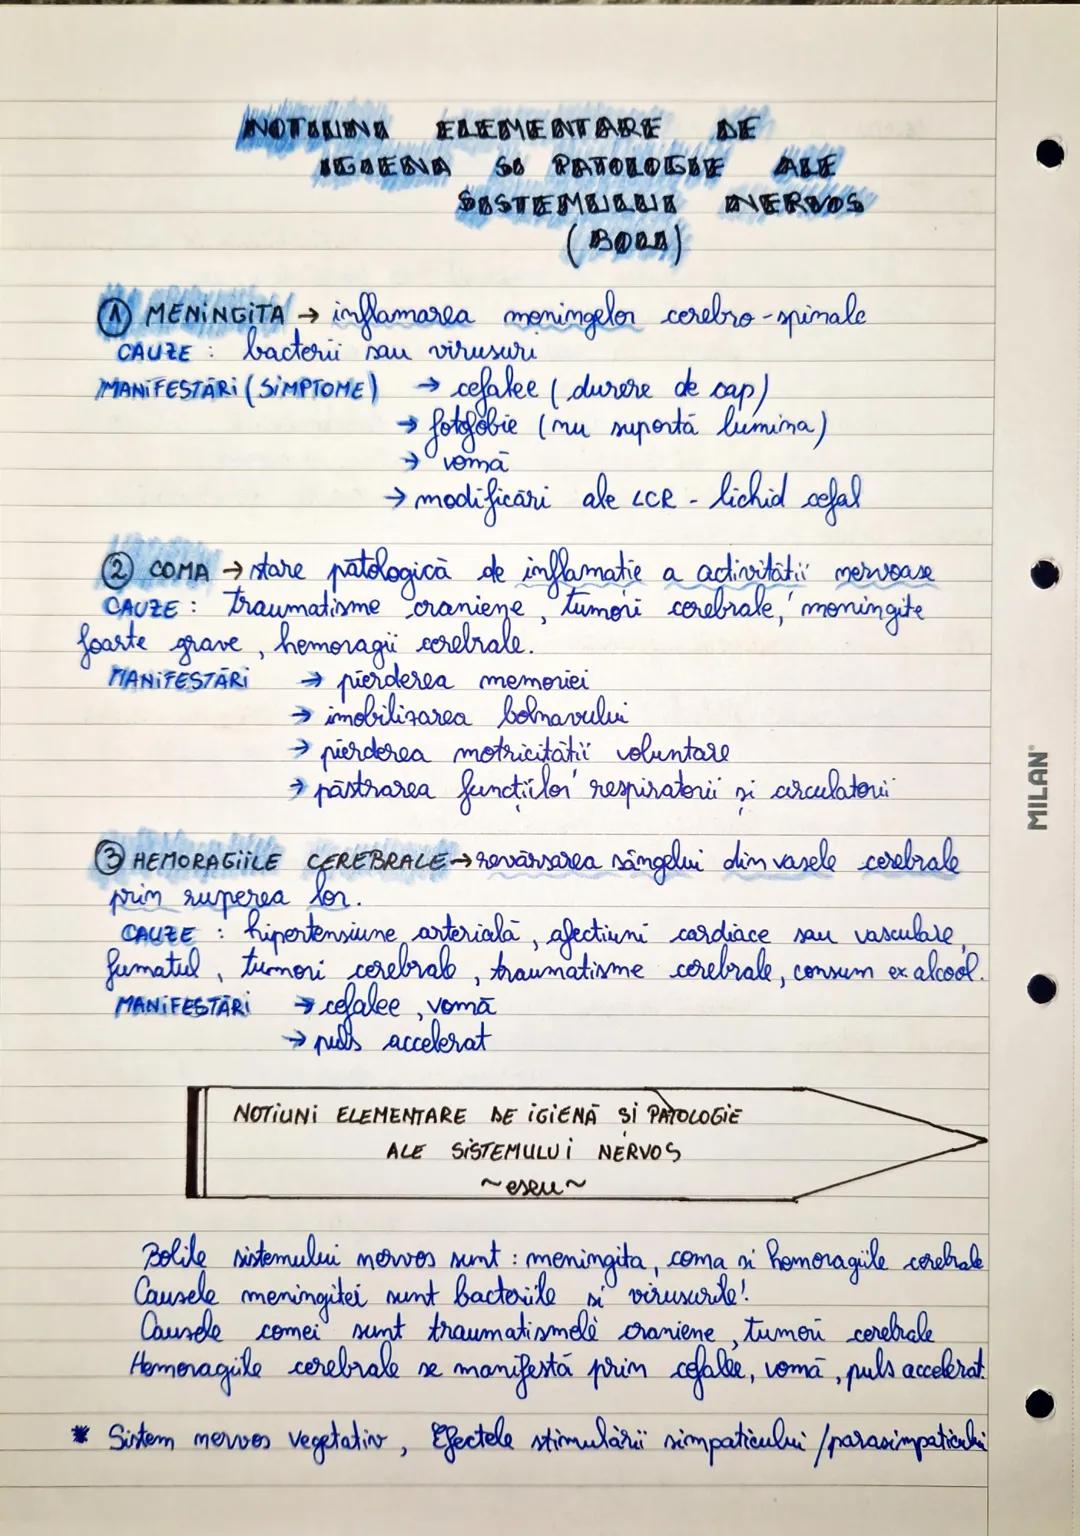 NOTIUNI ELEMENTARE DE
IGIENA SI PATOLOGIE ALE
SISTEMULUI NERVOS
(BOLI)
① MENINGITA → inflamarea meningelor cerebro-spinale
CAUZE : bacterii sau virusuri
MANIFESTĂRI (SIMPTOME) → cefalee (durere de cap)
→ fotofobie (nu suportă lumina)
→ vomă
→ modificări ale LCR - lichid cefal
② COMA → stare patologică de inflamatie a activității nervoase
CAUZE : traumatisme craniene, tumori cerebrale, meningite
foarte grave, hemoragii cerebrale.
MANIFESTĂRI → pierderea memoriei
→ imobilizarea bolnavului
→ pierderea motricității voluntare
→ păstrarea funcțiilor respiratorii și circulatorii
③ HEMORAGIILE CEREBRALE → revărsarea sângelui din vasele cerebrale
prin ruperea lor.
CAUZE : hipertensiune arterială, afectiuni cardiace sau vasculare,
fumatul, tumori cerebrale, traumatisme cerebrale, consum ex alcool.
MANIFESTĂRI → cefalee, vomă
→ puls accelerat
NOȚIUNI ELEMENTARE DE IGIENĂ ȘI PATOLOGIE
ALE SISTEMULUI NERVOS
~eseu~
Bolile sistemului nervos sunt : meningita, coma si hemoragiile cerebrale
Causele meningitei sunt bacteriile și virusurile!
Causele comei sunt traumatismele craniene, tumori cerebrale
Hemoragiile cerebrale se manifestă prin cefalee, vomă, puls accelerat.
* Sistem nervos vegetativ, Efectele stimulării simpaticului /parasimpaticului
MILAN